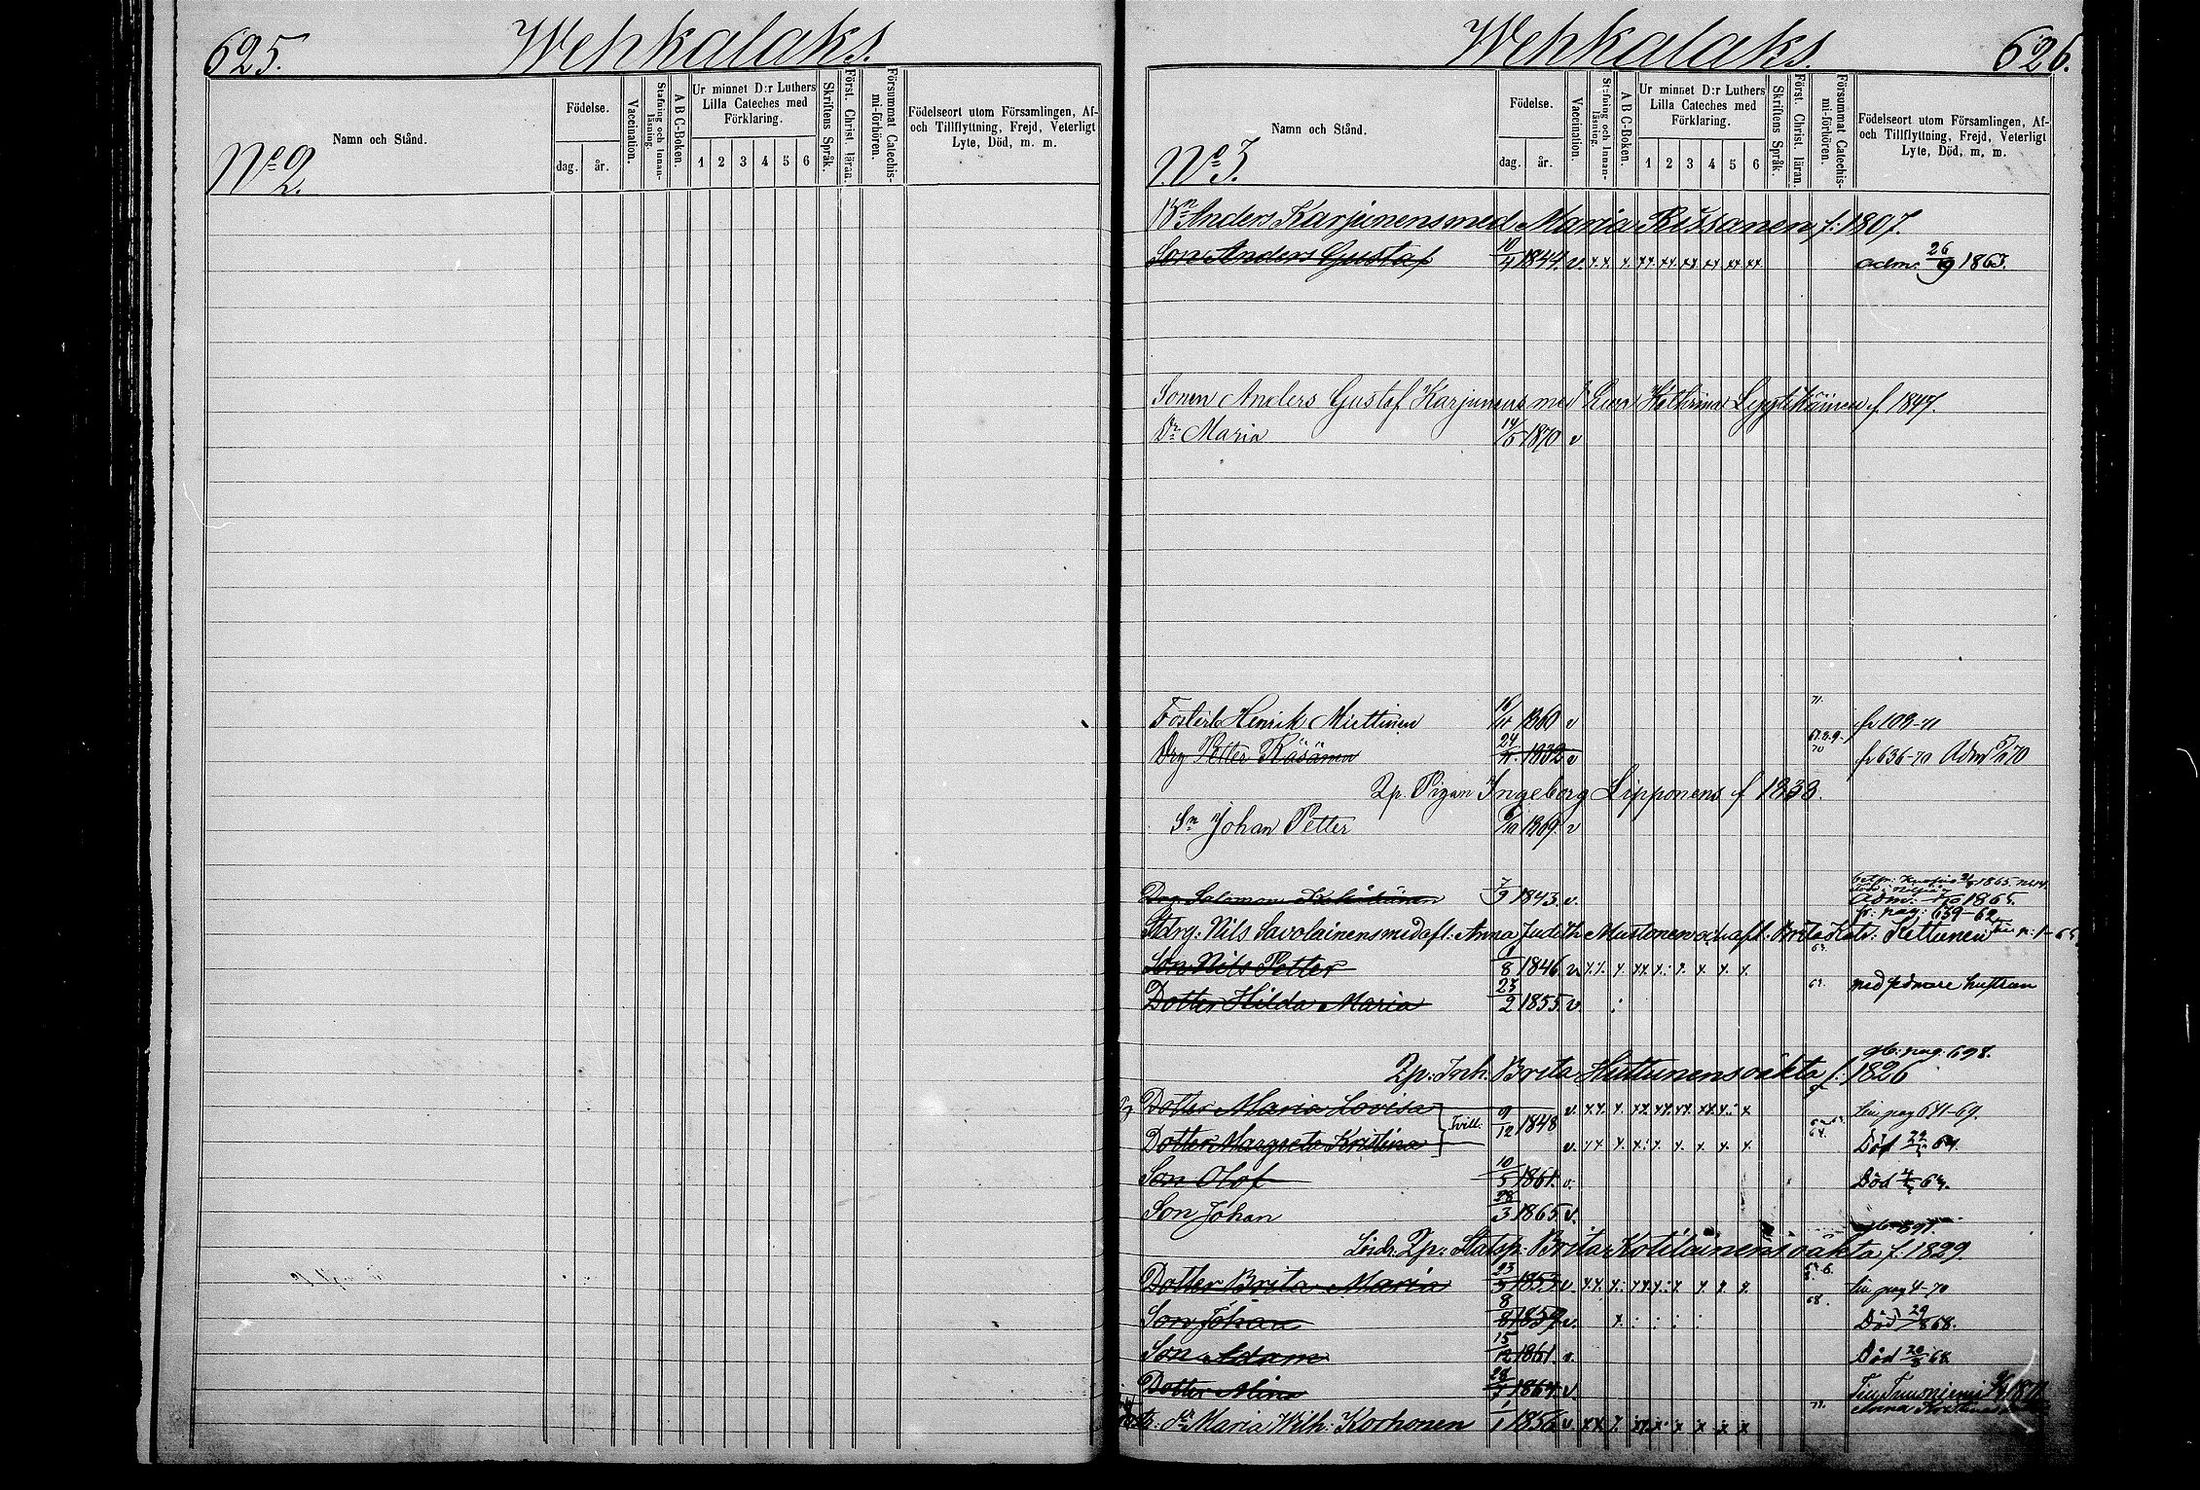 625. Wehkalaks.
Namn och Stånd.
Födelse.
dag. år.
Vaccination.
Stafning och Innan-läsning.
A B C-Boken.
Ur minnet D:r Luthers
Lilla Cateches med
Förklaring.
1 2 3 4 5 6
Skriftens Språk.
Först. Christ. läran.
Försummat Catechis-mi-förhören.
Födelseort utom Församlingen, Af-
och Tillflyttning, Frejd, Veterligt
Lyte, Död, m. m.
No 2.
Wehkalaks. 626.
Namn och Stånd.
Födelse.
dag. år.
Vaccination.
Stafning och Innan-läsning.
A B C-Boken.
Ur minnet D:r Luthers
Lilla Cateches med
Förklaring.
1 2 3 4 5 6
Skriftens Språk.
Först. Christ. läran.
Försummat Catechis-mi-förhören.
Födelseort utom Församlingen, Af-
och Tillflyttning, Frejd, Veterligt
Lyte, Död, m. m.
No 3.
Anders Karjunens med Maria Rissanen f: 1807.
Son Anders Gustaf 10/4 1844. v. adm. 26/9 1863.
Sonen Anders Gustaf Karjunens med Eva Kathrina f. 1847.
Dr Maria 14/5 1870 v
Henrik Miettinen 1860 v 71. fr 109-71
Drg Petter Räsänen 24 1832 v 70 fr 636-70
2p. Pigan Ingeborg Lipponens f 1838.
Sn Johan Petter 1869. v
Drg. Salomon 7/9 1843. v. Adm. 1865.
fr: pag: 639-62
Stdrg: Nils Savolainens med afl: Anna Judith Mustonen och afl: Brita Kettunen
Son Nils Petter 1/8 1846. v.
Dotter Hilda Maria 23/2 1855. v. med hustrun
pag: 698.
2p: Inh. Brita Huttunens oäkta f. 1826
Dotter Maria Lovisa Tvill. 9/12 1848 v. pag 641-69.
Dotter Margreta Kristina v. Död 64.
Son Olof 10/5 1861. v. Död 64.
Son Johan 28/3 1865 v.
2p: Brita Kotilainens oäkta f. 1829
Dotter Brita Maria 23 1853 v. pag 4-70
Son Johan 8/8 1859 v. 68. Död 29/8 68.
Son Adam 15/12 1861. v. Död 68
Dotter Alina 28 1864. v
dr Maria Wilh: Korhonen 1/1 1856 v. 71. Anna